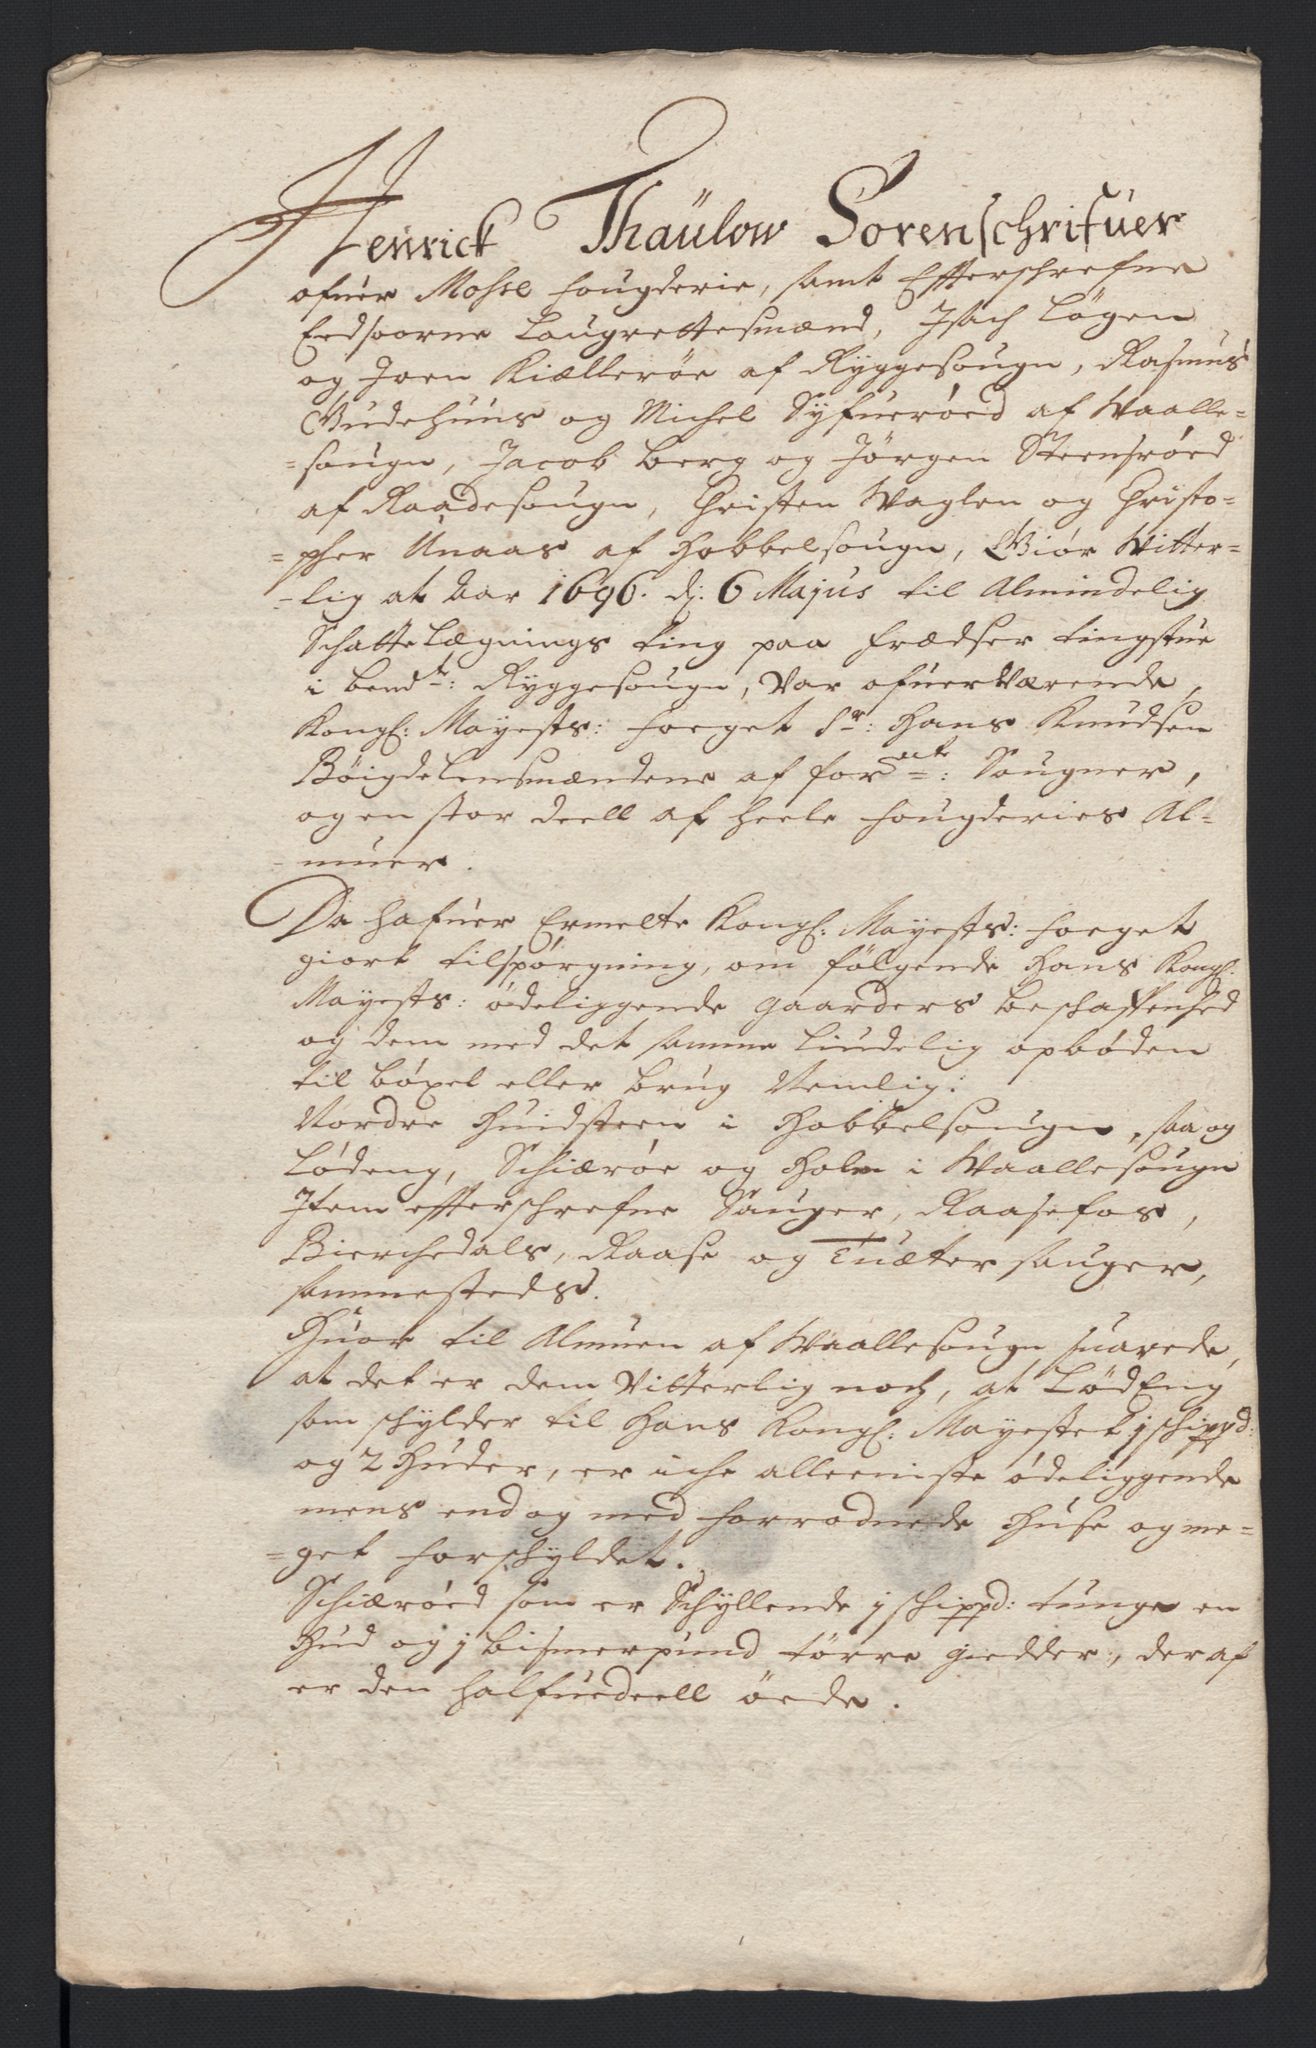 Henrick Thaülow Sorenschrifuer
ofuer Mosse fougderie, samt Effterschrefne
Eedsoorne Laugrettesmænd, Isach Lögen
og Joen Kiælleröe af Ryggesougn, Rasmus
Gudehuus og Michel Syfueröed af Waalle-
=sougn, Jacob Berg og Jörgen Steensröed
af Raadesougn, Christen Waglen og Christo-
=pher Unaas af Hobbelsougn, Giör Witter=
=lig at Aar 1696. d: 6 Majus til Almindelig
Schattelægnings ting paa Frædser tingstue
i bemdte: Ryggesougn, Var ofuerværende,
Kongl: Mayests: foeget Sr: Hans Knudsen
Böigdelensmændene af forneste: Sougner,
og en stor deell af heele fougderies Al-
=muer.
Da hafuer Ermelte Kongl: Mayests: foeget
giort tilspörgning, om fölgende Hans Kongl:
Mayests: ödeliggende gaarders beschaffenhed
og dem med det samme liudelig opböden
til böxel eller brug Nemlig:
Nordre Huidsteen i Hobbelsougn, saa og
Lödeng, Schiæröe og Holm i Waallesougn
Item effterschrefne Sauger, Raasefos,
Bierchedals, Raase og Tuæter sauger,
sammesteds.
Huor til Almuen af Waallesougn suarede,
at det er dem Vitterlig noch, at LödEng
som schylder til Hans Kongl: Mayestet j schippd:
og 2 Huder, er iche alleeniste ödeliggende
mens end og med forradnede Huse og me-
=get forschyldet.
Schiæröed som er Schyllende j schippd: tunge en
Hud og j bismerpund törre giedder, der af
er den halfuedeell öede.